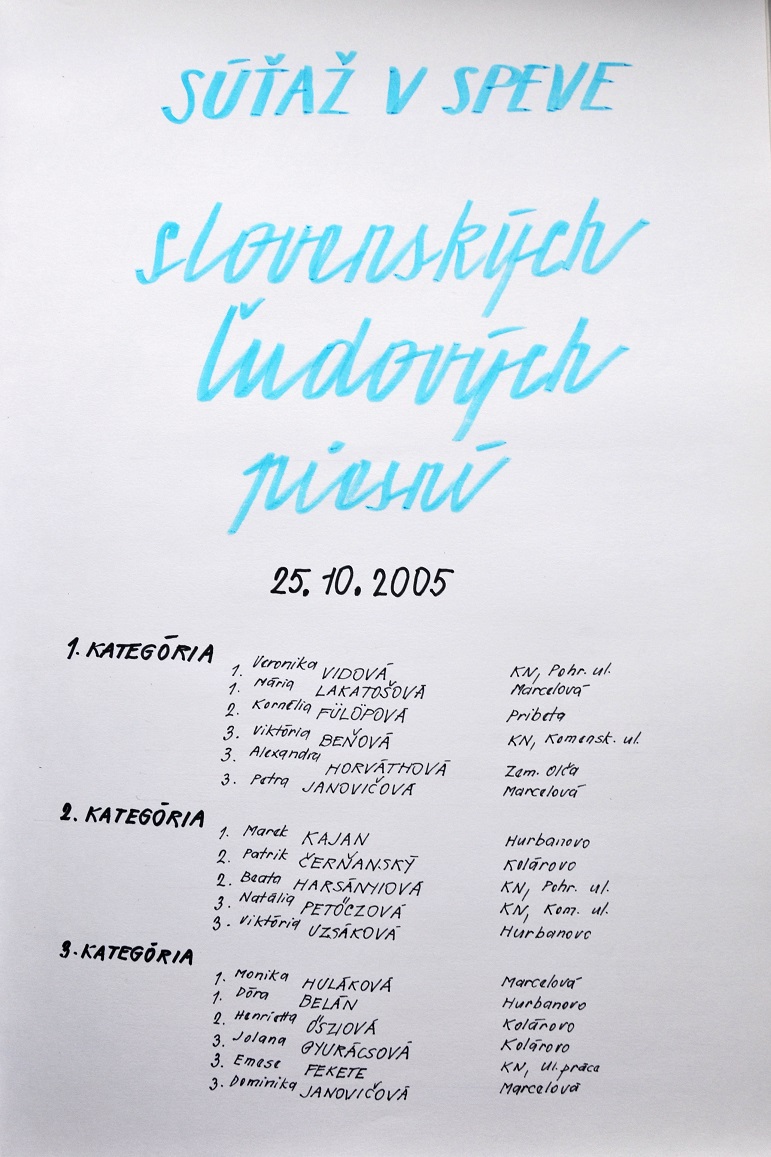 SÚŤAŽ V SPEVE
slovenských
ľudových
piesní
25. 10. 2005
1. KATEGÓRIA
1. Veronika VIDOVÁ KN, Pohr. ul.
1. Mária LAKATOŠOVÁ Marcelová
2. Kornélia FÜLÖPOVÁ Pribeta
3. Viktória BEŇOVÁ KN, Komensk. ul.
3. Alexandra HORVÁTHOVÁ Zem. Olča
3. Petra JANOVIČOVÁ Marcelová
2. KATEGÓRIA
1. Marek KAJAN Hurbanovo
2. Patrik ČERŇANSKÝ Kolárovo
2. Beata HARSÁNYIOVÁ KN, Pohr. ul.
3. Natália PETŐCZOVÁ KN, Kom. ul.
3. Viktória UZSÁKOVÁ Hurbanovo
3. KATEGÓRIA
1. Monika HULÁKOVÁ Marcelová
1. Dóra BELÁN Hurbanovo
2. Henrietta ŐSZIOVÁ Kolárovo
3. Jolana GYURÁCSOVÁ Kolárovo
3. Emese FEKETE KN, Ul. práce
3. Dominika JANOVIČOVÁ Marcelová